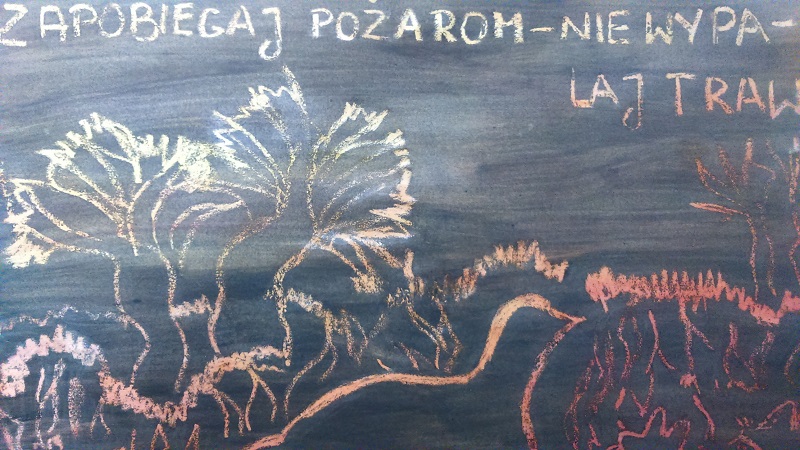 ZAPOBIEGAJ POŻAROM-NIE WYPA-
LAJ TRAW